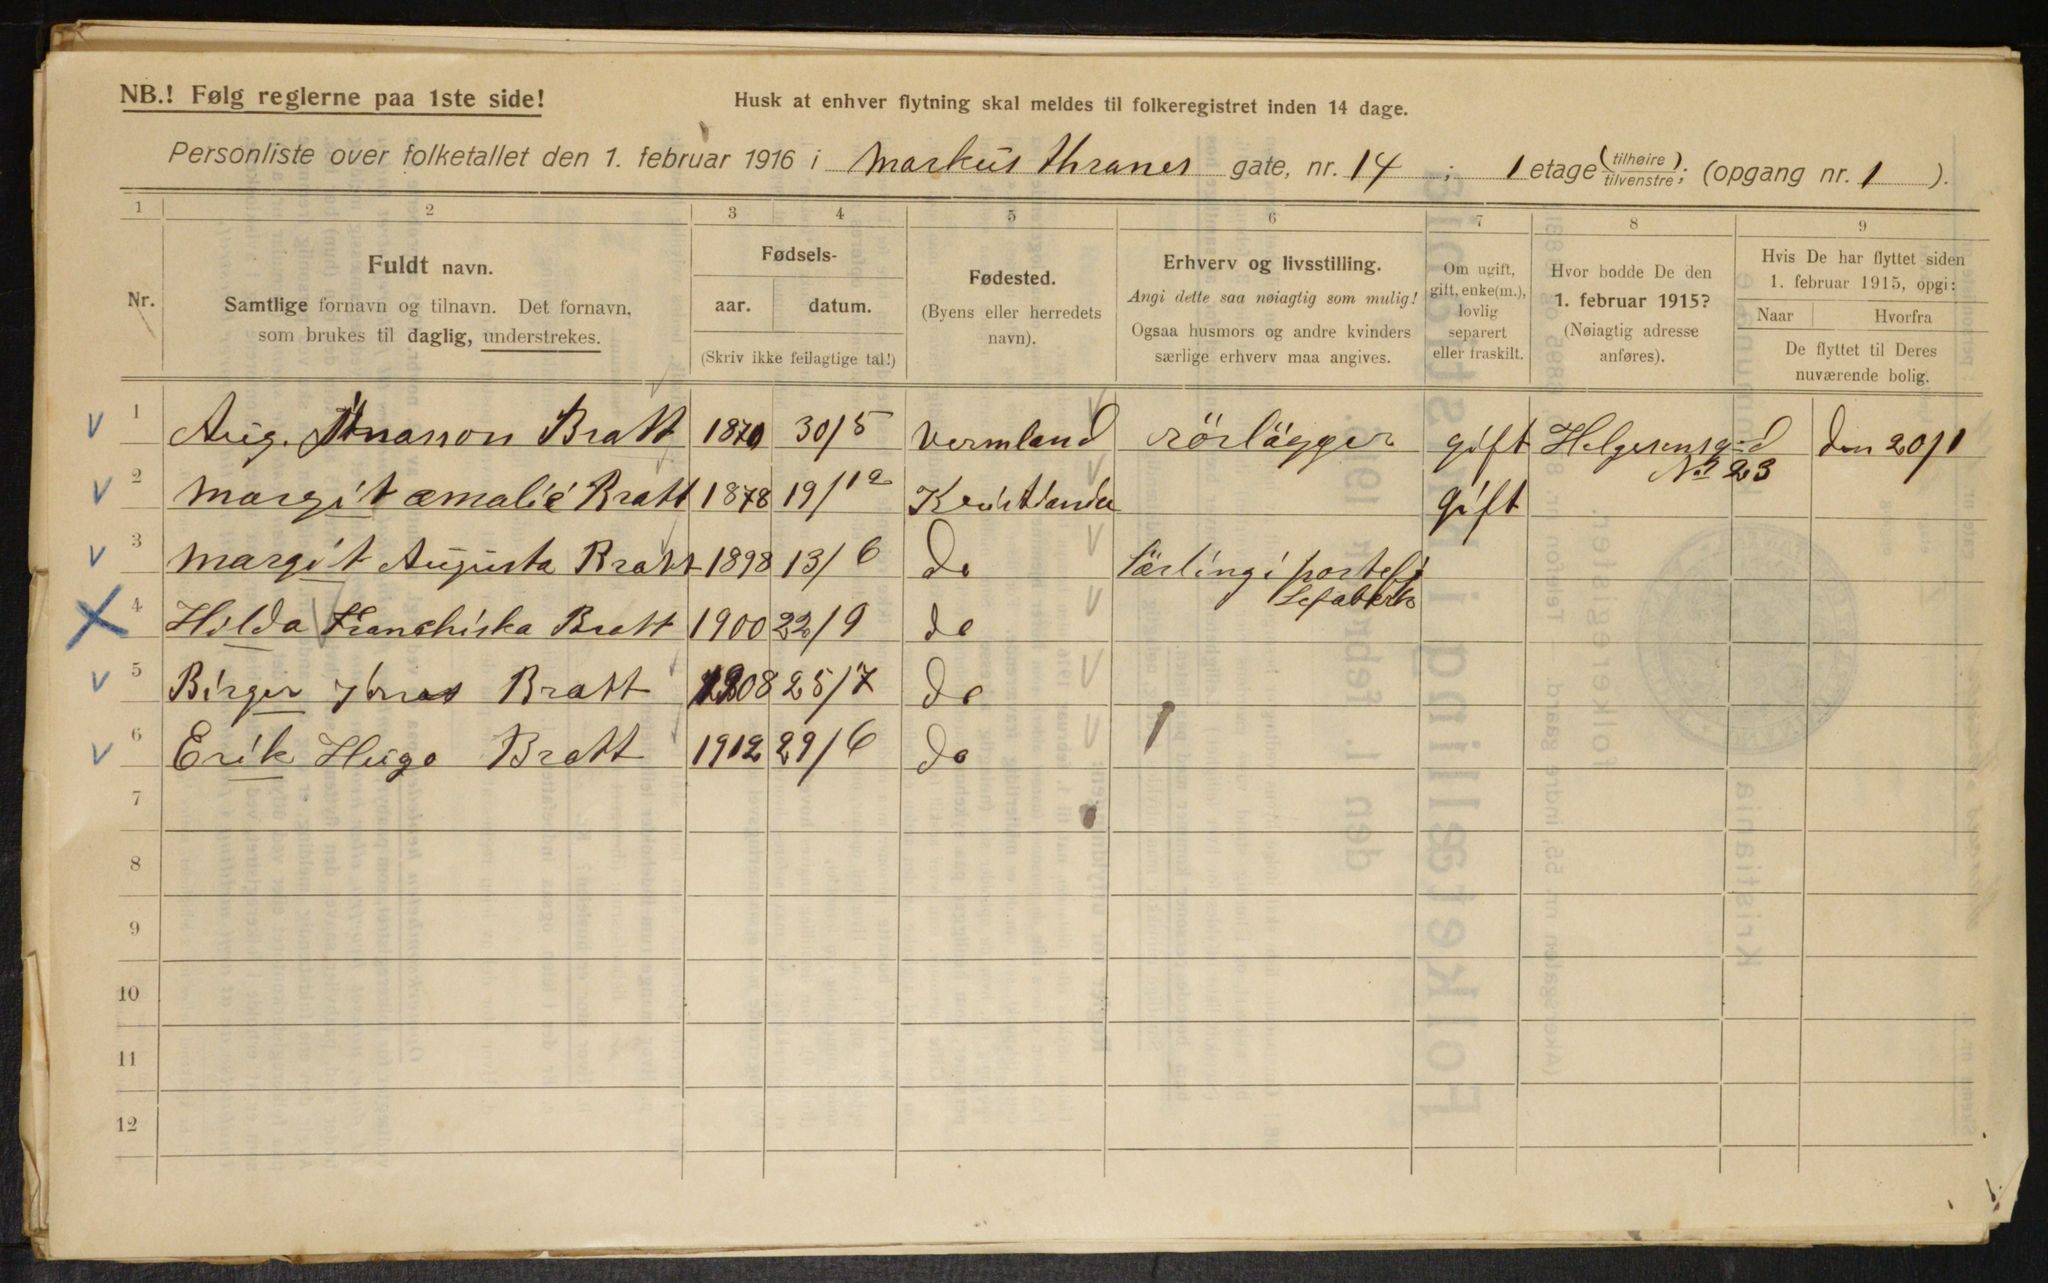 NB.! Følg reglerne paa 1ste side!
Husk at enhver flytning skal meldes til folkeregistret inden 14 dage.
Personliste over folketallet den 1. februar 1916 i Markus thranes gate, nr. 14 ; 1 etage (tilhøire / tilvenstre); (opgang nr. 1 ).
1 2 3 4 5 6 7 8 9
Nr.
Fuldt navn.
Samtlige fornavn og tilnavn. Det fornavn,
som brukes til daglig, understrekes.
Fødsels-
aar. datum.
(Skriv ikke feilagtige tal!)
Fødested.
(Byens eller herredets
navn).
Erhverv og livsstilling.
Angi dette saa nøiagtig som mulig!
Ogsaa husmors og andre kvinders
særlige erhverv maa angives.
Om ugift,
gift, enke(m.),
lovlig
separert
eller fraskilt.
Hvor bodde De den
1. februar 1915?
(Nøiagtig adresse
anføres).
Hvis De har flyttet siden
1. februar 1915, opgi:
Naar Hvorfra
De flyttet til Deres
nuværende bolig.
1 Aug. Jonasson Bratt 1870 30/5 Vermland rörlägger gift Helgesensgad den 20/1
No 23
2 Margit Amalie Bratt 1878 19/12 Kristiania gift
3 Margit Augusta Bratt 1898 13/6 do Lärling i
4 Hilda Franchiska Bratt 1900 22/9 do
5 Birger Jonas Bratt 1908 25/7 do
6 Erik Hugo Bratt 1912 29/6 do
7
8
9
10
11
12